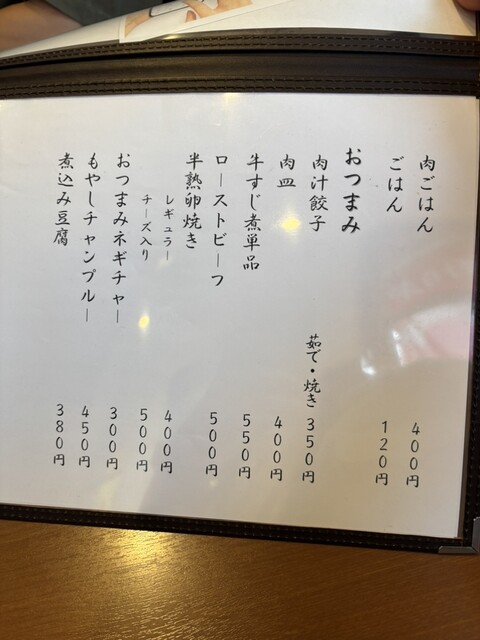 肉ごはん 400円
ごはん 120円
おつまみ
肉汁餃子 茹で・焼き 350円
肉皿 400円
牛すじ煮単品 550円
ローストビーフ 500円
半熟卵焼き
レギュラー 400円
チーズ入り 500円
おつまみネギチャー 300円
もやしチャンプルー 450円
煮込み豆腐 380円